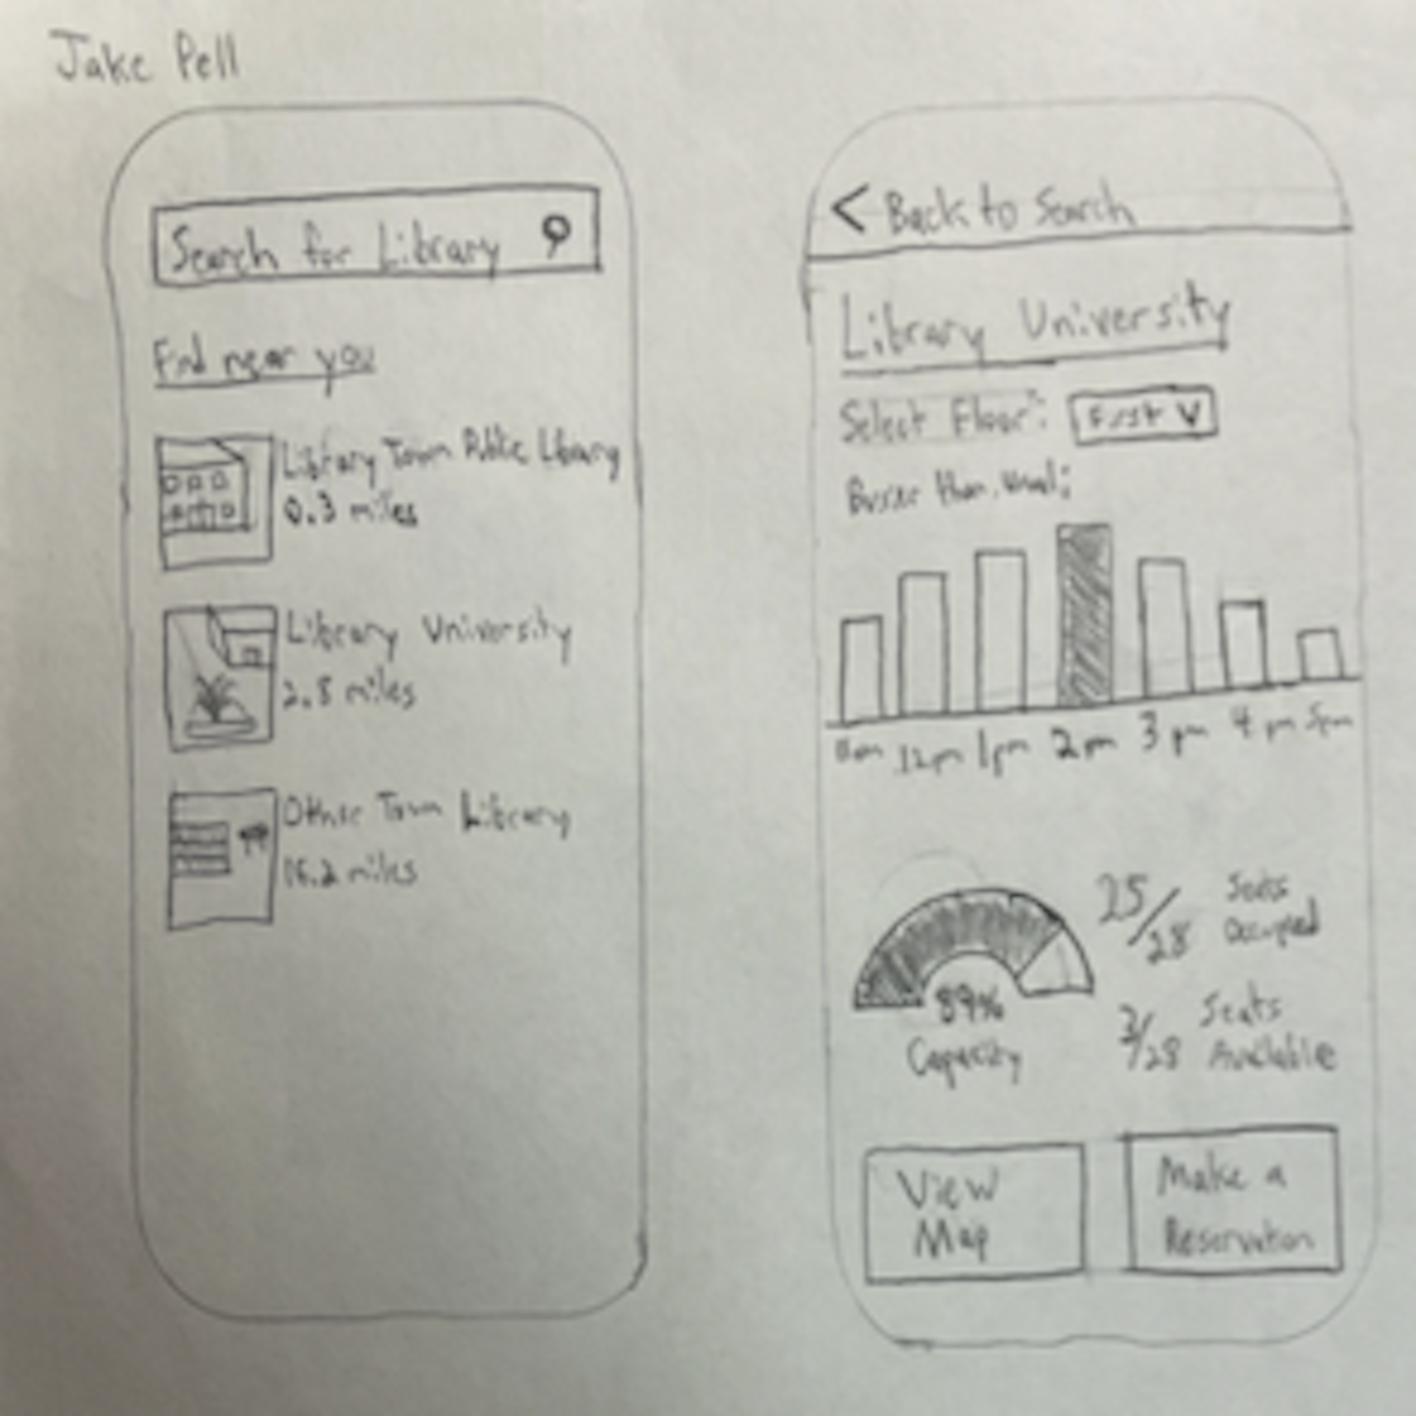 Jake Pell
Search for Library
Find near you
Library Town Public Library
0.3 miles
Library University
2.8 miles
Other Town Library
16.2 miles
< Back to Search
Library University
Select Floor: First V
Busier than usual:
11am 12pm 1pm 2pm 3pm 4pm 5pm
89%
Capacity
25/28 Seats
Occupied
3/28 Seats
Available
View
Map
Make a
Reservation